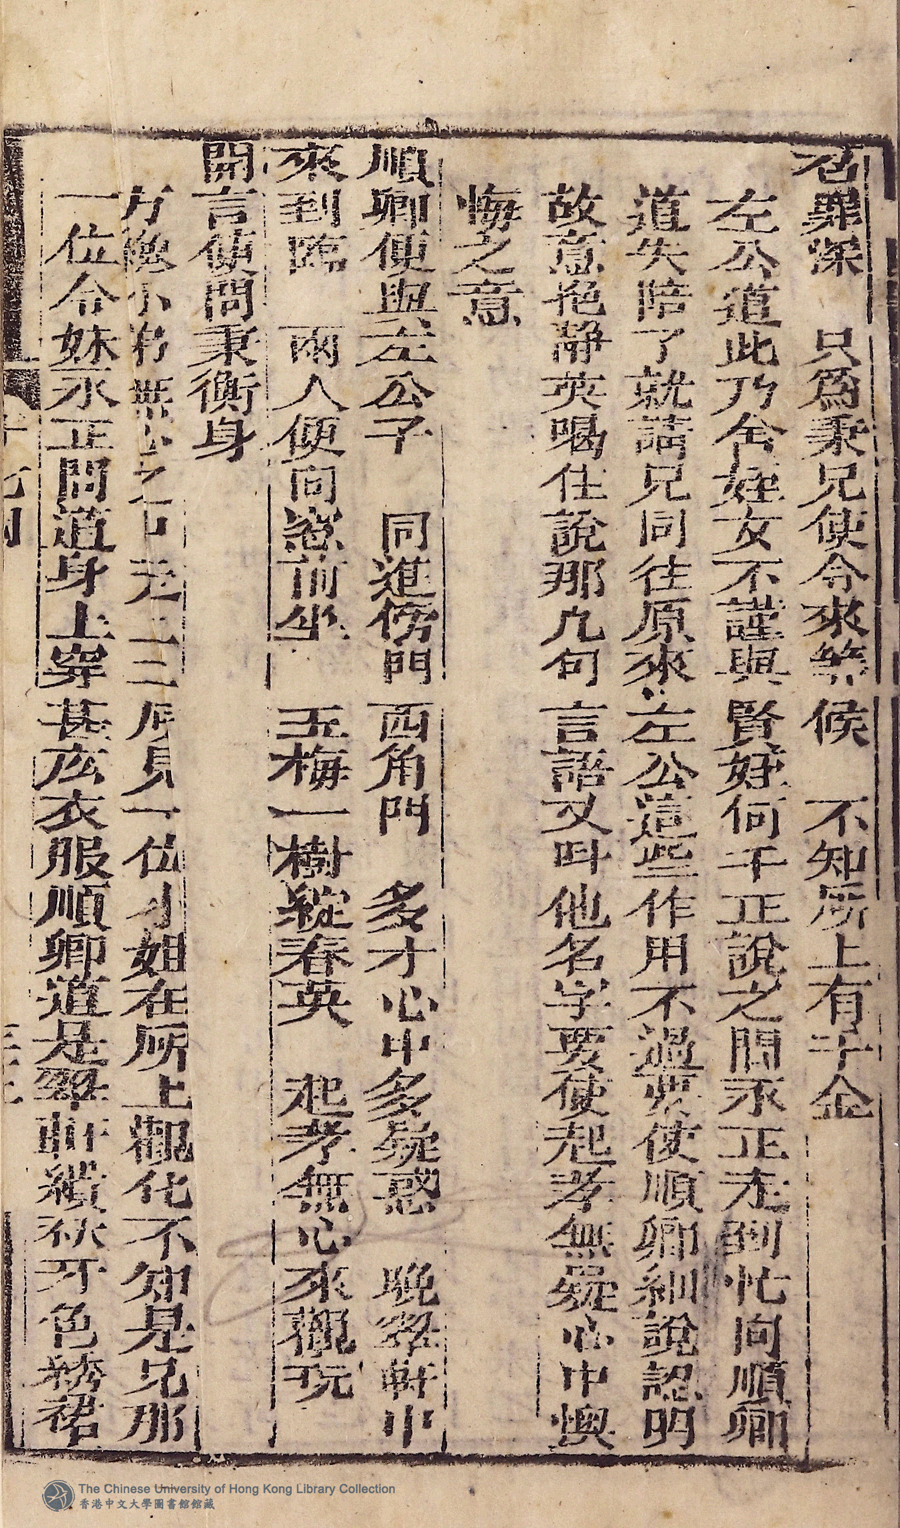 罪深　只為秉兄使令來等候　不知所上有千金
左公道此乃舍姪女不謹與賢姪何干正說之間永正走到忙向順卿
道失陪了就請兄同往原來左公這些作用不過要使順卿細說認明
故意抱靜英喝住說那几句言語又叫他名字要使起孝無疑心中懊
悔之意
順卿便與左公子　同進傍門西角門　多才心中多疑惑　晚翠軒中
來到臨　兩人便向窓前坐　玉梅一樹綻春英　起孝無心來觀玩
開言使問秉衡身
方纔小弟無心之中走上二所見一位小姐在所上觀化不知是兄那
一位令妹永正問道身上穿甚庅衣服順卿道是翠軒繽袄牙色綉裙
The Chinese University of Hong Kong Library Collection
香港中文大學圖書館館藏